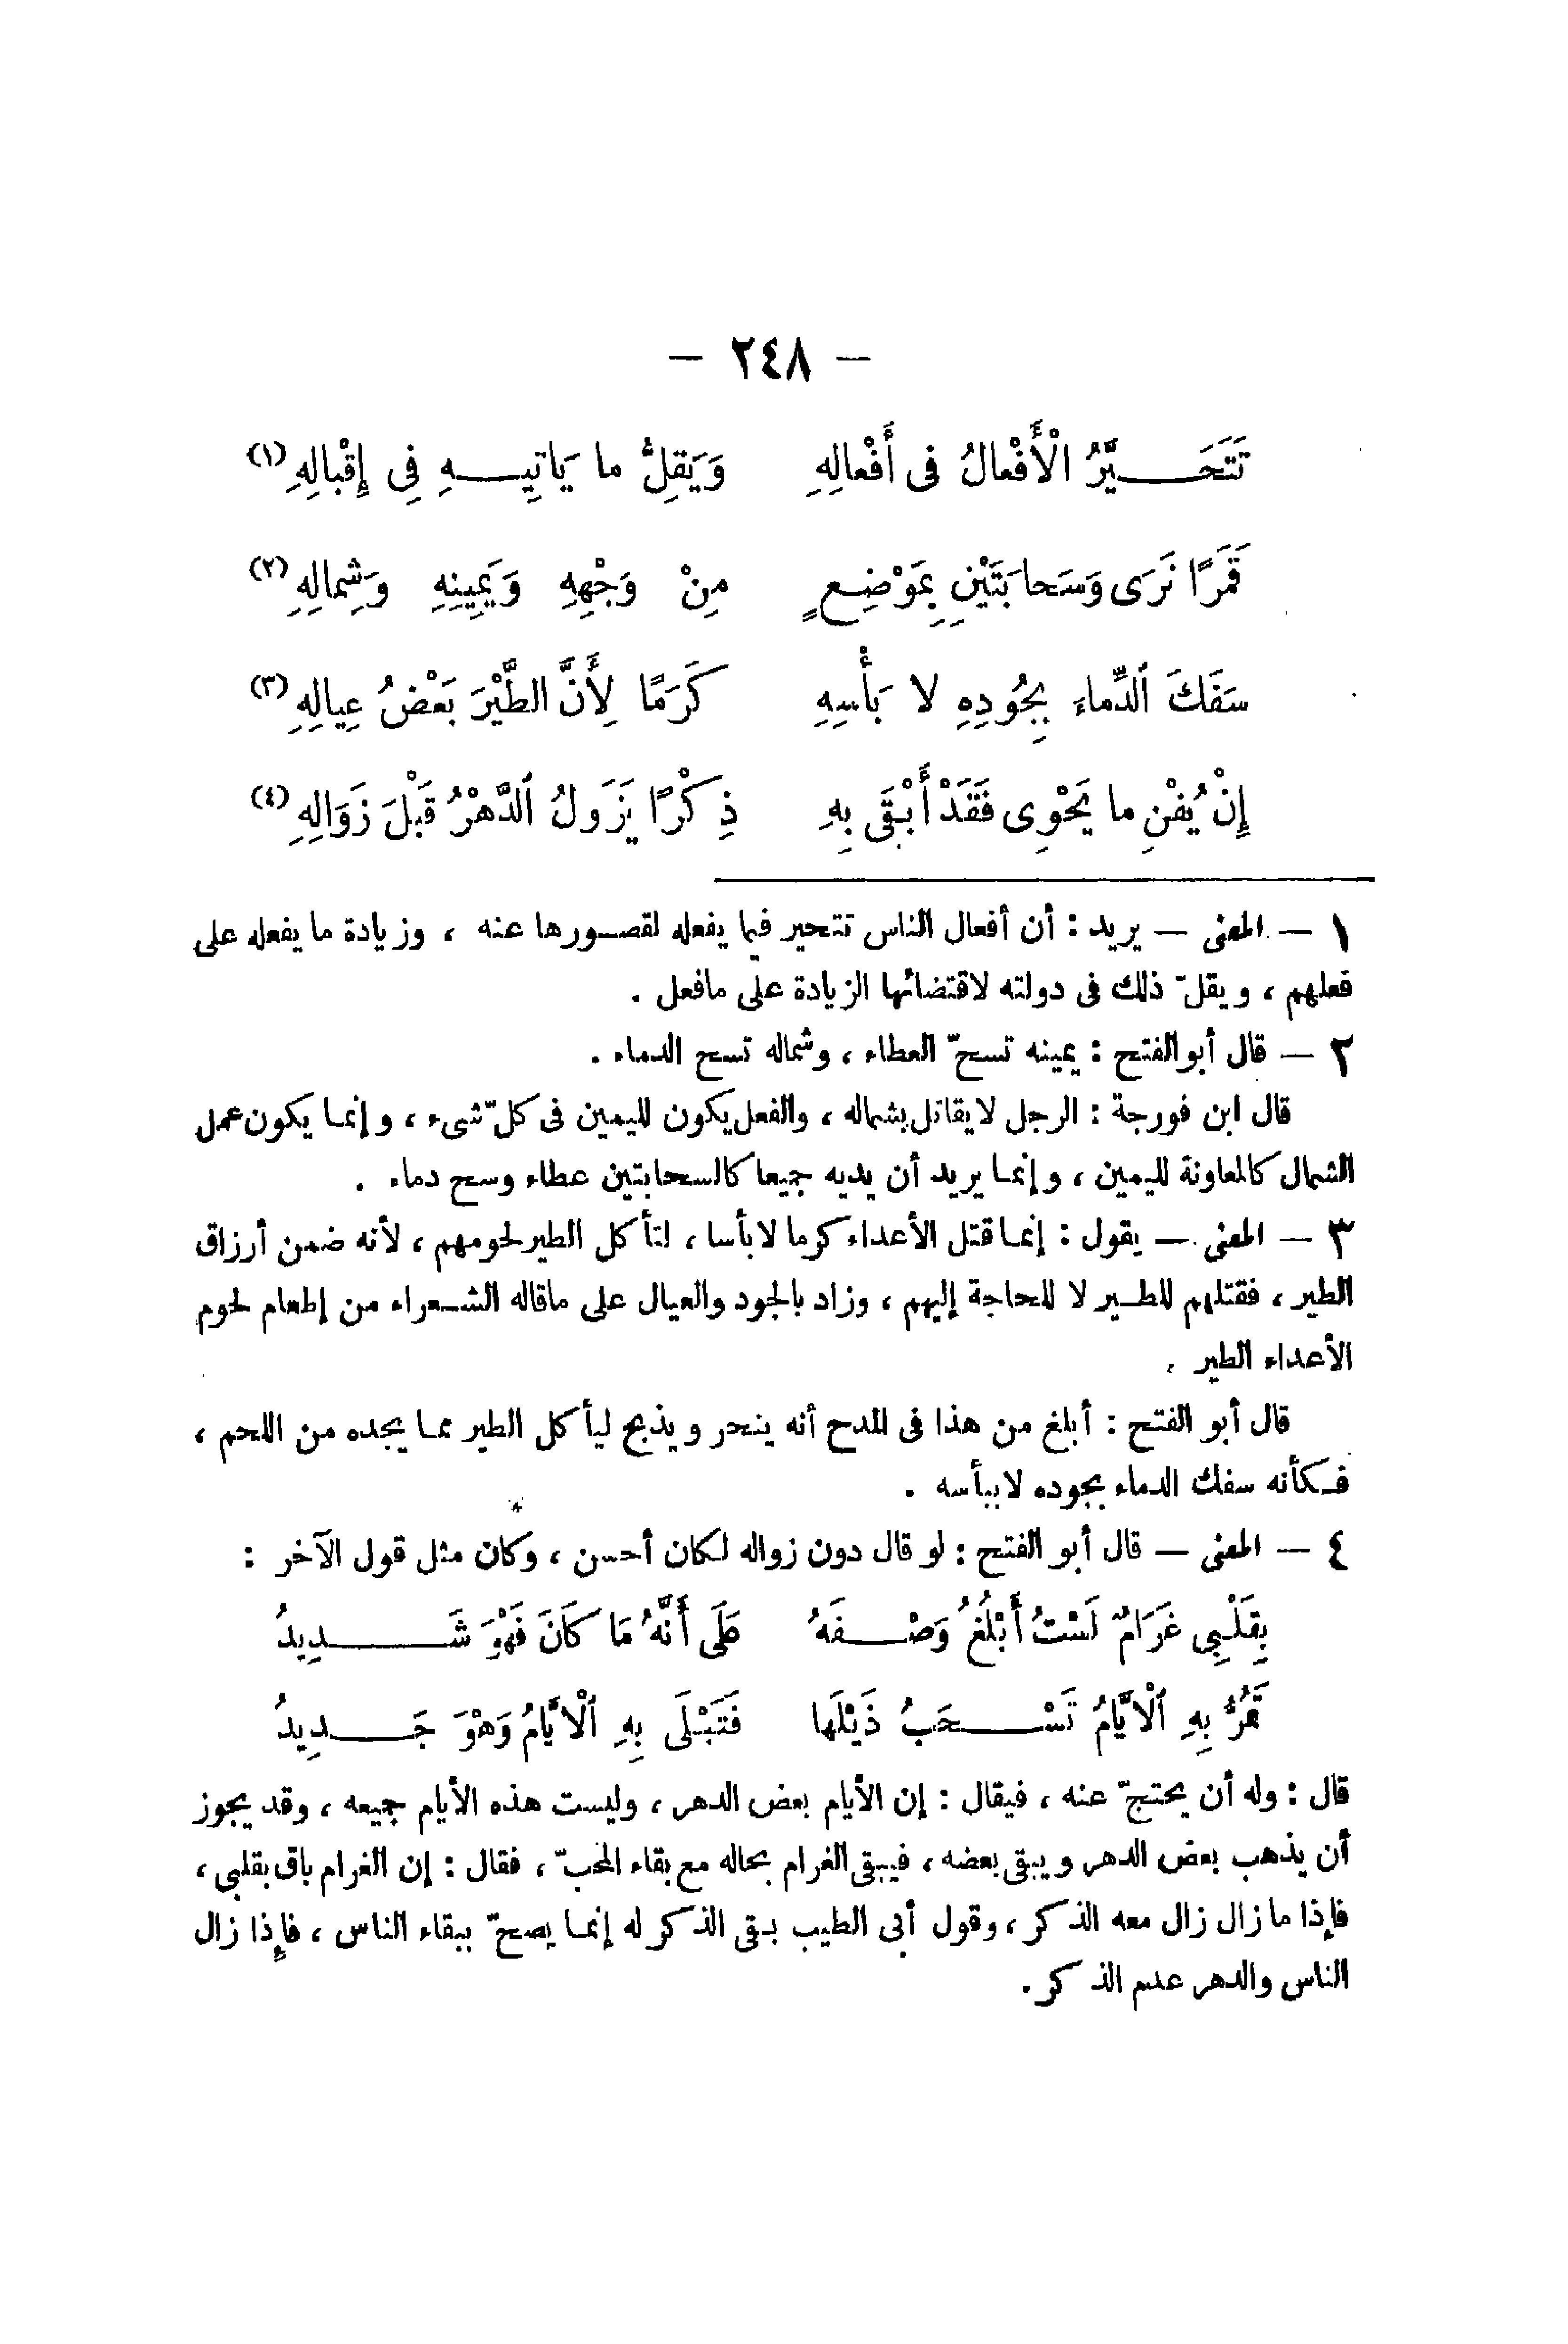 — ٢٤٨ —
تَتَحَيَّرُ الْأَفْعالُ فى أَفْعالِهِ وَيَقِلُّ ما يَاتِيهِ فِى إِقْبالِهِ (١)
قَمَرًا نَرَى وَسَحابَتَيْنِ بِمَوْضِعٍ مِنْ وَجْهِهِ وَيَمِينِهِ وَشِمالِهِ (٢)
سَفَكَ الدِّماءَ بِجُودِهِ لا بَأْسِهِ كَرَمًا لِأَنَّ الطَّيْرَ بَعْضُ عِيالِهِ (٣)
إِنْ يُفْنِ ما يَحْوِى فَقَدْ أَبْقَى بِهِ ذِكْرًا يَزُولُ الدَّهْرُ قَبْلَ زَوَالِهِ (٤)
١ — المعنى — يريد : أن أفعال الناس تتحير فيما يفعله لقصورها عنه ، وزيادة ما يفعله على
فعلهم ، ويقلّ ذلك فى دولته لاقتضائها الزيادة على مافعل .
٢ — قال أبوالفتح : يمينه تسحّ العطاء ، وشماله تسح الدماء .
قال ابن فورجة : الرجل لايقاتل بشماله ، والفعل يكون لليمين فى كلّ شىء ، وإنما يكون عمل
الشمال كالمعاونة لليمين ، وإنما يريد أن يديه جميعا كالسحابتين عطاء وسح دماء .
٣ — المعنى — يقول : إنما قتل الأعداء كرما لابأسا ، لتأكل الطير لحومهم ، لأنه ضمن أرزاق
الطير ، فقتلهم للطير لا للحاجة إليهم ، وزاد بالجود والعيال على ماقاله الشعراء من إطعام لحوم
الأعداء الطير .
قال أبو الفتح : أبلغ من هذا فى المدح أنه ينحر ويذبح ليأكل الطير مما يجده من اللحم ،
فكأنه سفك الدماء بجوده لاببأسه .
٤ — المعنى — قال أبو الفتح : لو قال دون زواله لكان أحسن ، وكان مثل قول الآخر :
بِقَلْبِى غَرَامٌ لَسْتُ أَبْلُغُ وَصْفَهُ عَلَى أَنَّهُ مَا كَانَ فَهْوَ شَدِيدُ
تَمُرُّ بِهِ الْأَيَّامُ تَسْحَبُ ذَيْلَها فَتَبْلَى بِهِ الْأَيَّامُ وَهْوَ جَدِيدُ
قال : وله أن يحتجّ عنه ، فيقال : إن الأيام بعض الدهر ، وليست هذه الأيام جميعه ، وقد يجوز
أن يذهب بعض الدهر ويبقى بعضه ، فيبقى الغرام بحاله مع بقاء المحبّ ، فقال : إن الغرام باق بقلبى ،
فإذا ما زال زال معه الذكر ، وقول أبى الطيب بقى الذكر له إنما يصحّ ببقاء الناس ، فإذا زال
الناس والدهر عدم الذكر .